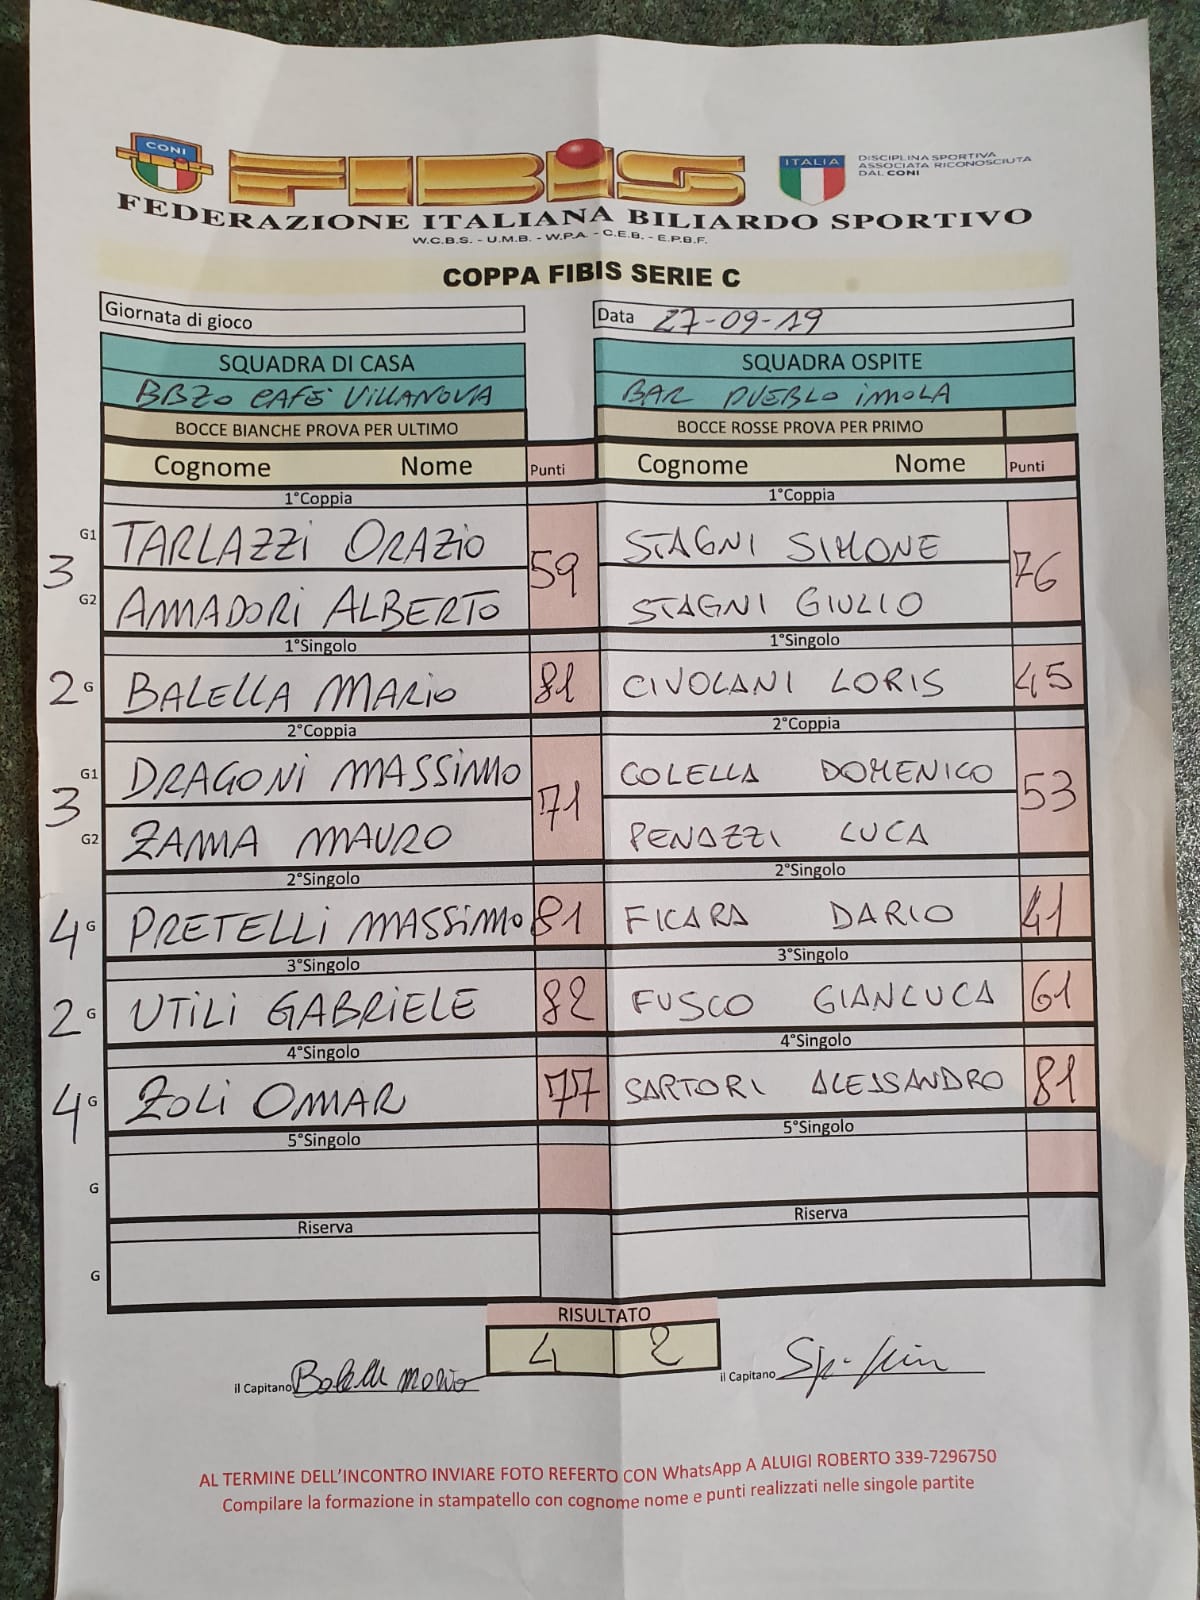 CONI
FIBIS
ITALIA
DISCIPLINA SPORTIVA
ASSOCIATA RICONOSCIUTA
DAL CONI
FEDERAZIONE ITALIANA BILIARDO SPORTIVO
W.C.B.S. - U.M.B. - W.P.A. - C.E.B. - E.P.B.F.
COPPA FIBIS SERIE C
Giornata di gioco Data 27-09-19
SQUADRA DI CASA SQUADRA OSPITE
CAFE' VILLANOVA BAR PUEBLO IMOLA
BOCCE BIANCHE PROVA PER ULTIMO BOCCE ROSSE PROVA PER PRIMO
Cognome Nome Punti Cognome Nome Punti
1°Coppia 1°Coppia
G1 TARLAZZI ORAZIO STAGNI SIMONE
3 59 76
G2 AMADORI ALBERTO STAGNI GIULIO
1°Singolo 1°Singolo
2 G BALELLA MARIO 81 CIVOLANI LORIS 45
2°Coppia 2°Coppia
G1 DRAGONI MASSIMO COLELLA DOMENICO
3 71 53
G2 ZAMA MAURO PENAZZI LUCA
2°Singolo 2°Singolo
4 G PRETELLI MASSIMO 81 FICARA DARIO 41
3°Singolo 3°Singolo
2 G UTILI GABRIELE 82 FUSCO GIANLUCA 61
4°Singolo 4°Singolo
4 G ZOLI OMAR 77 SARTORI ALESSANDRO 81
5°Singolo 5°Singolo
G
Riserva Riserva
G
RISULTATO
4 2
il Capitano Balella Mario il Capitano
AL TERMINE DELL'INCONTRO INVIARE FOTO REFERTO CON WhatsApp A ALUIGI ROBERTO 339-7296750
Compilare la formazione in stampatello con cognome nome e punti realizzati nelle singole partite